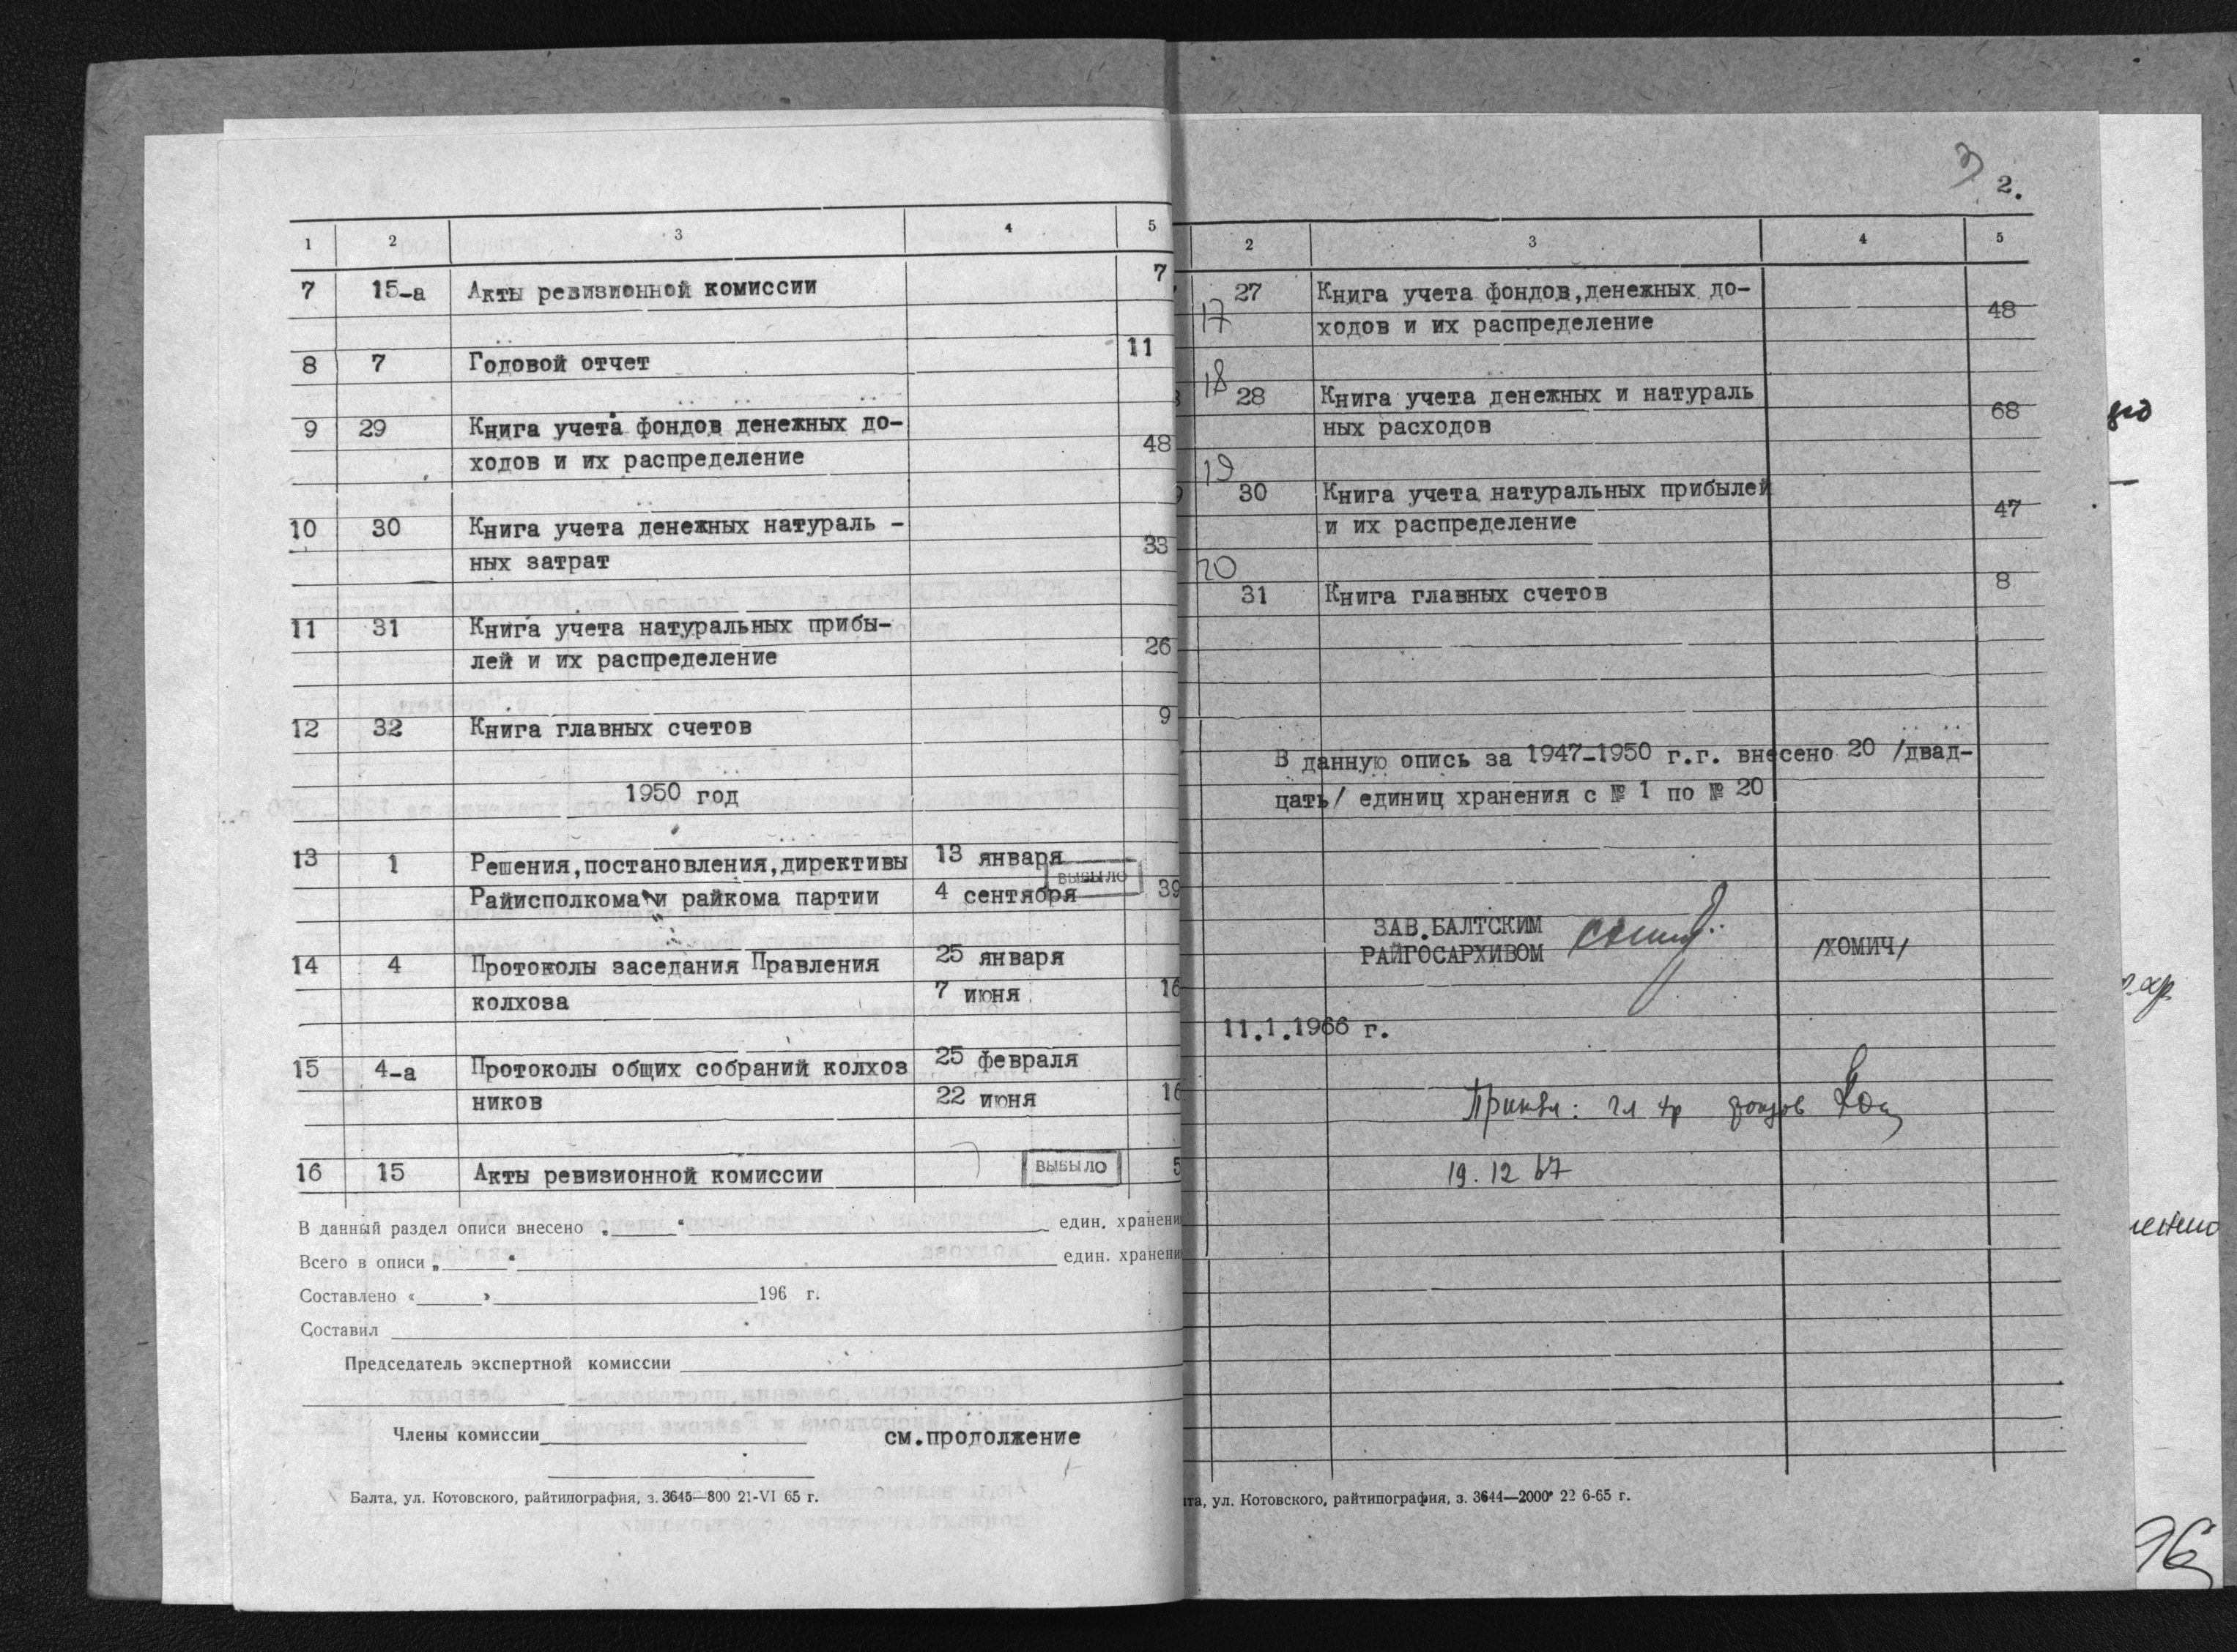 1 2 3 4 5
7 15-а Акты ревизионной комиссии 7
8 7 Годовой отчет 11
9 29 Книга учета фондов денежных до-
ходов и их распределение 48
10 30 Книга учета денежных натураль -
ных затрат 33
11 31 Книга учета натуральных прибы-
лей и их распределение 26
12 32 Книга главных счетов 9
1950 год
13 1 Решения,постановления,директивы 13 января
Райисполкома и райкома партии 4 сентября 39
выбыло
14 4 Протоколы заседания Правления 25 января
колхоза 7 июня 16
15 4-а Протоколы общих собраний колхоз 25 февраля
ников 22 июня 16
16 15 Акты ревизионной комиссии выбыло 5
В данный раздел описи внесено „ “ един. хранени
Всего в описи „ “ един. хранени
Составлено « » 196 г.
Составил
Председатель экспертной комиссии
Члены комиссии
см.продолжение
Балта, ул. Котовского, райтипография, з. 3645—800 21-VI 65 г.
3
2.
2 3 4 5
17 27 Книга учета фондов,денежных до-
ходов и их распределение 48
18 28 Книга учета денежных и натураль
ных расходов 68
19 30 Книга учета натуральных прибылей
и их распределение 47
20 31 Книга главных счетов 8
В данную опись за 1947-1950 г.г. внесено 20 /двад-
цать/ единиц хранения с № 1 по № 20
ЗАВ.БАЛТСКИМ
РАЙГОСАРХИВОМ /ХОМИЧ/
11.1.1966 г.
19.12 67
та, ул. Котовского, райтипография, з. 3644—2000 22 6-65 г.